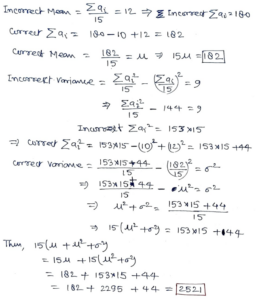 Incorrect Mean = Σai/15 = 12 ⇒ Σ Incorrect Σai = 180
Correct Σai = 180 - 10 + 12 = 182
Correct Mean = 182/15 = μ ⇒ 15μ = 182
Incorrect Variance = Σai²/15 - (Σai/15)² = 9
⇒ Σai²/15 - 144 = 9
Incorrect Σai² = 153×15
⇒ Correct Σai² = 153×15 - (10)² + (12)² = 153×15 + 44
Correct Variance = 153×15+44/15 - (182/15)² = σ²
⇒ 153×15+44/15 - μ² = σ²
⇒ μ² + σ² = 153×15 + 44/15
⇒ 15(μ² + σ²) = 153×15 + 44
Thus, 15(μ + μ² + σ²)
= 15μ + 15(μ² + σ²)
= 182 + 153×15 + 44
= 182 + 2295 + 44 = 2521